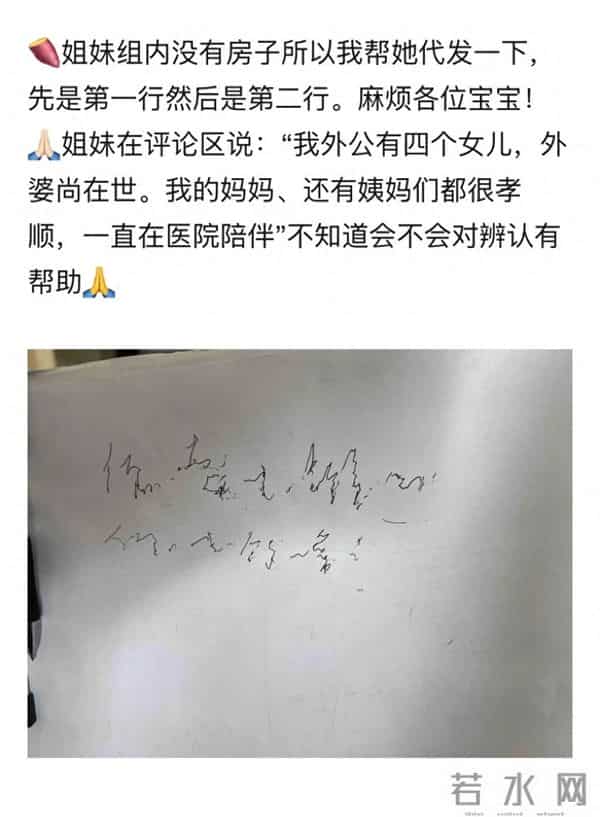 🍠姐妹组内没有房子所以我帮她代发一下，
先是第一行然后是第二行。麻烦各位宝宝！
🙏🏻姐妹在评论区说：“我外公有四个女儿，外
婆尚在世。我的妈妈、还有姨妈们都很孝
顺，一直在医院陪伴”不知道会不会对辨认有
帮助🙏
若水网